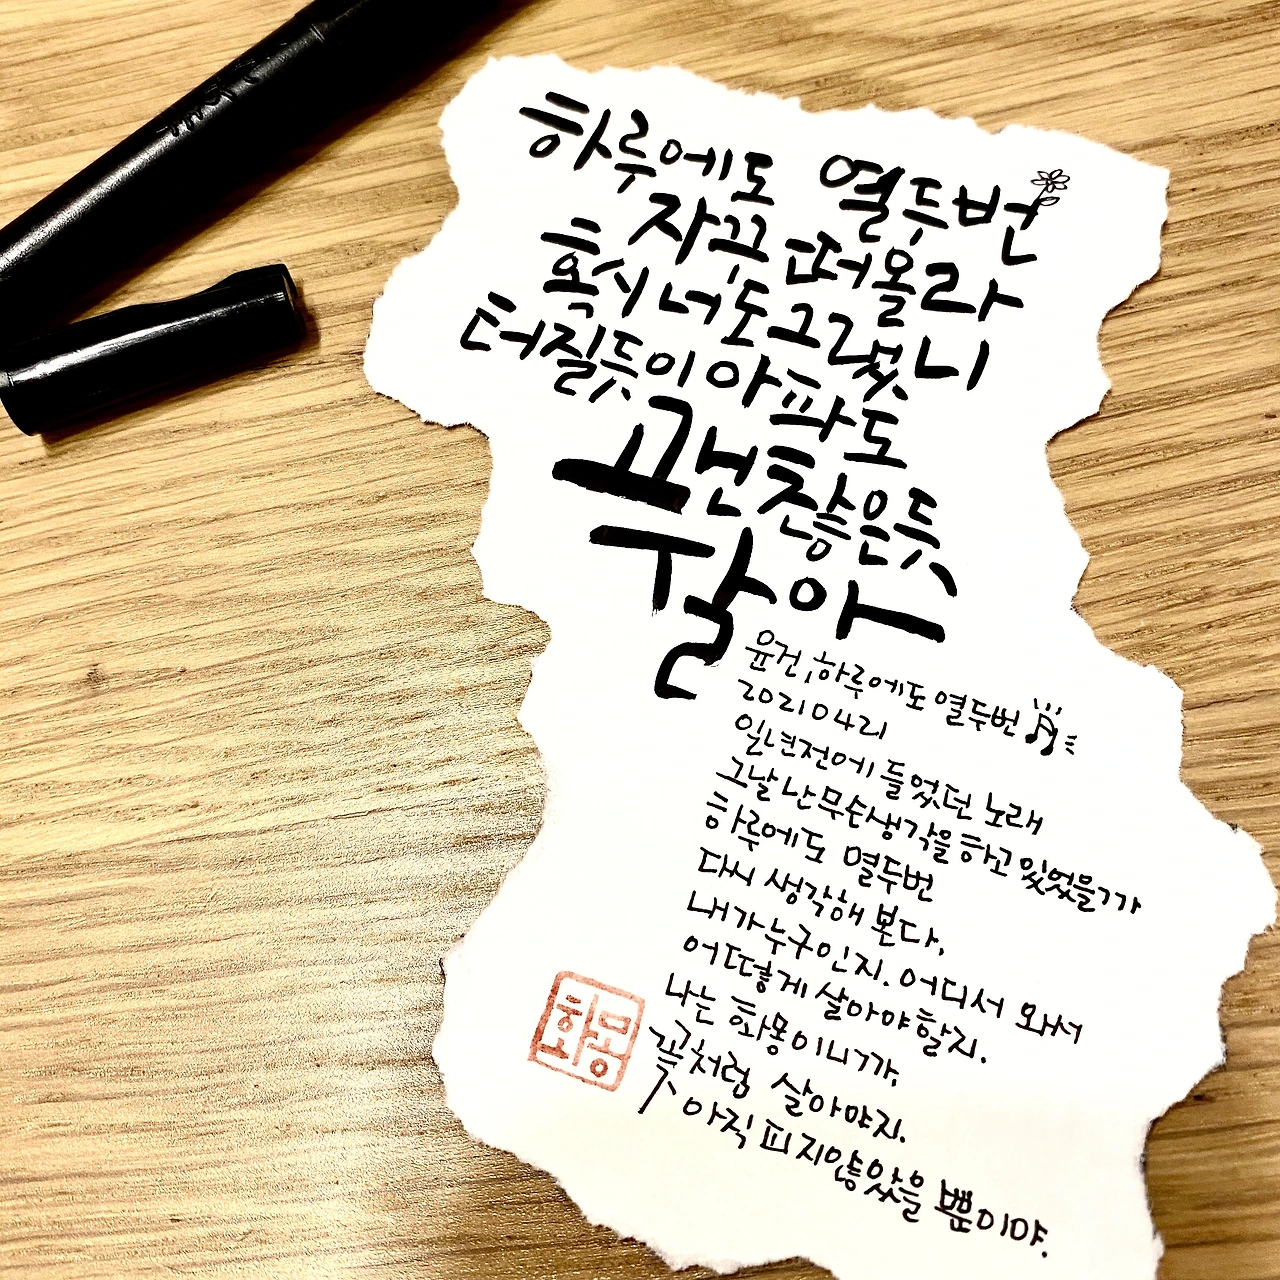 하루에도 열두번
자꾸 떠올라
혹시 너도 그랬니
터질듯이 아파도
괜찮은듯
살아
윤건, 하루에도 열두번
20210421
일년전에 들었던 노래
그날 난 무슨생각을 하고 있었을까
하루에도 열두번
다시 생각해 본다.
내가 누구인지. 어디서 와서
어떻게 살아야 할지.
나는 화몽이니까,
꽃처럼 살아야지.
아직 피지않았을 뿐이야.
화몽